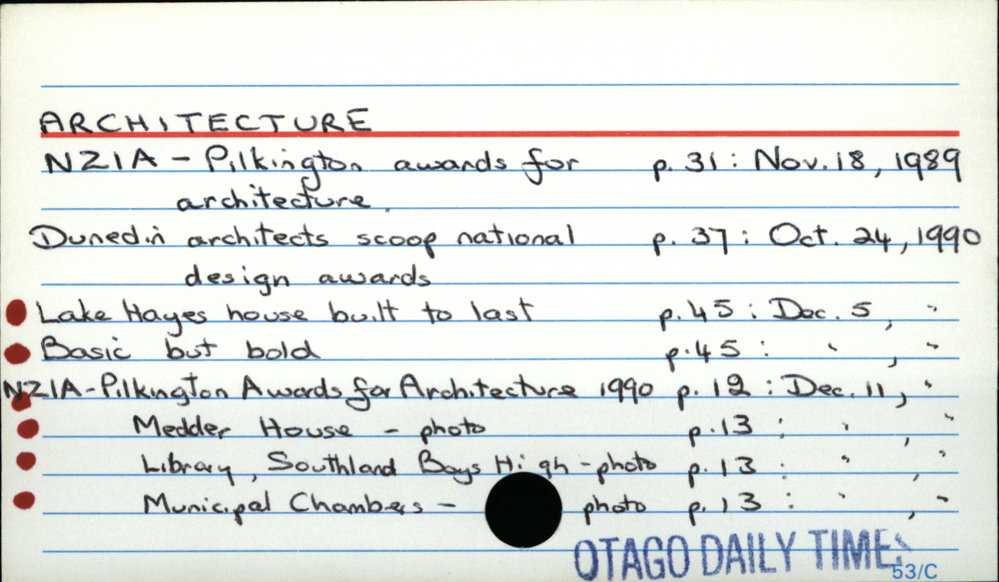 ARCHITECTURE
NZIA - Pilkington awards for p. 31 : Nov. 18, 1989
architecture.
Dunedin architects scoop national p. 37 : Oct. 24, 1990
design awards
Lake Hayes house built to last p. 45 : Dec. 5, "
Basic but bold p. 45 : " , "
NZIA-Pilkington Awards for Architecture 1990 p. 12 : Dec. 11, "
Medder House - photo p. 13 : " , "
Library, Southland Boys High - photo p. 13 : " , "
Municipal Chambers - photo p. 13 : " , "
OTAGO DAILY TIMES
53/C